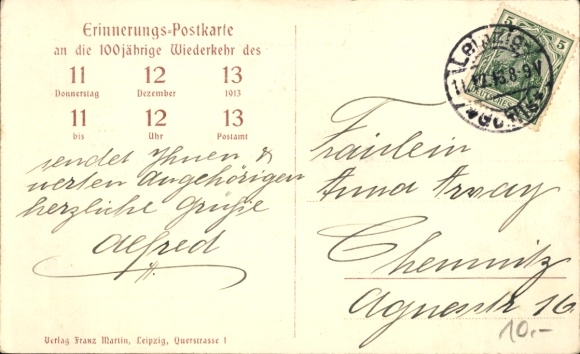 Erinnerungs-Postkarte
an die 100jährige Wiederkehr des
11 12 13
Donnerstag Dezember 1913
11 12 13
bis Uhr Postamt
sendet Ihnen &
werten Angehörigen
herzliche Grüße
Alfred
Verlag Franz Martin, Leipzig, Querstrasse 1
5 5
LEIPZIG
11.12.13.8-9V
Fräulein
Anna Arnay
Chemnitz
Agnesstr. 16
10.-